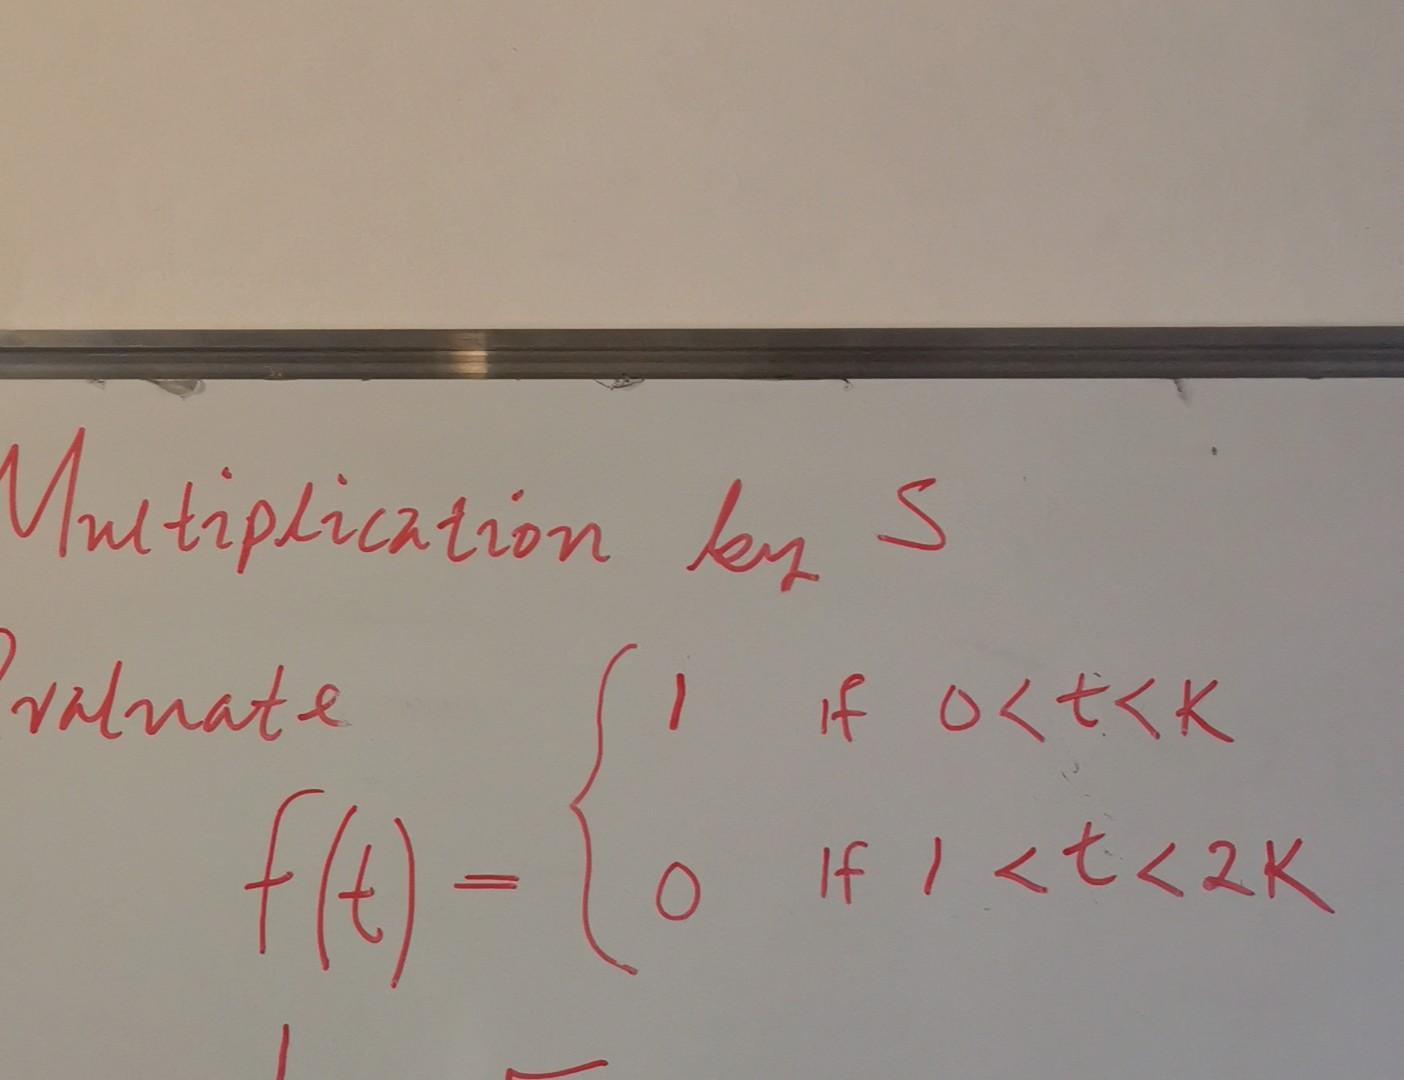 Multiplication by S
Evaluate
1 if 0<t<K
f(t) =
0 if 1<t<2K